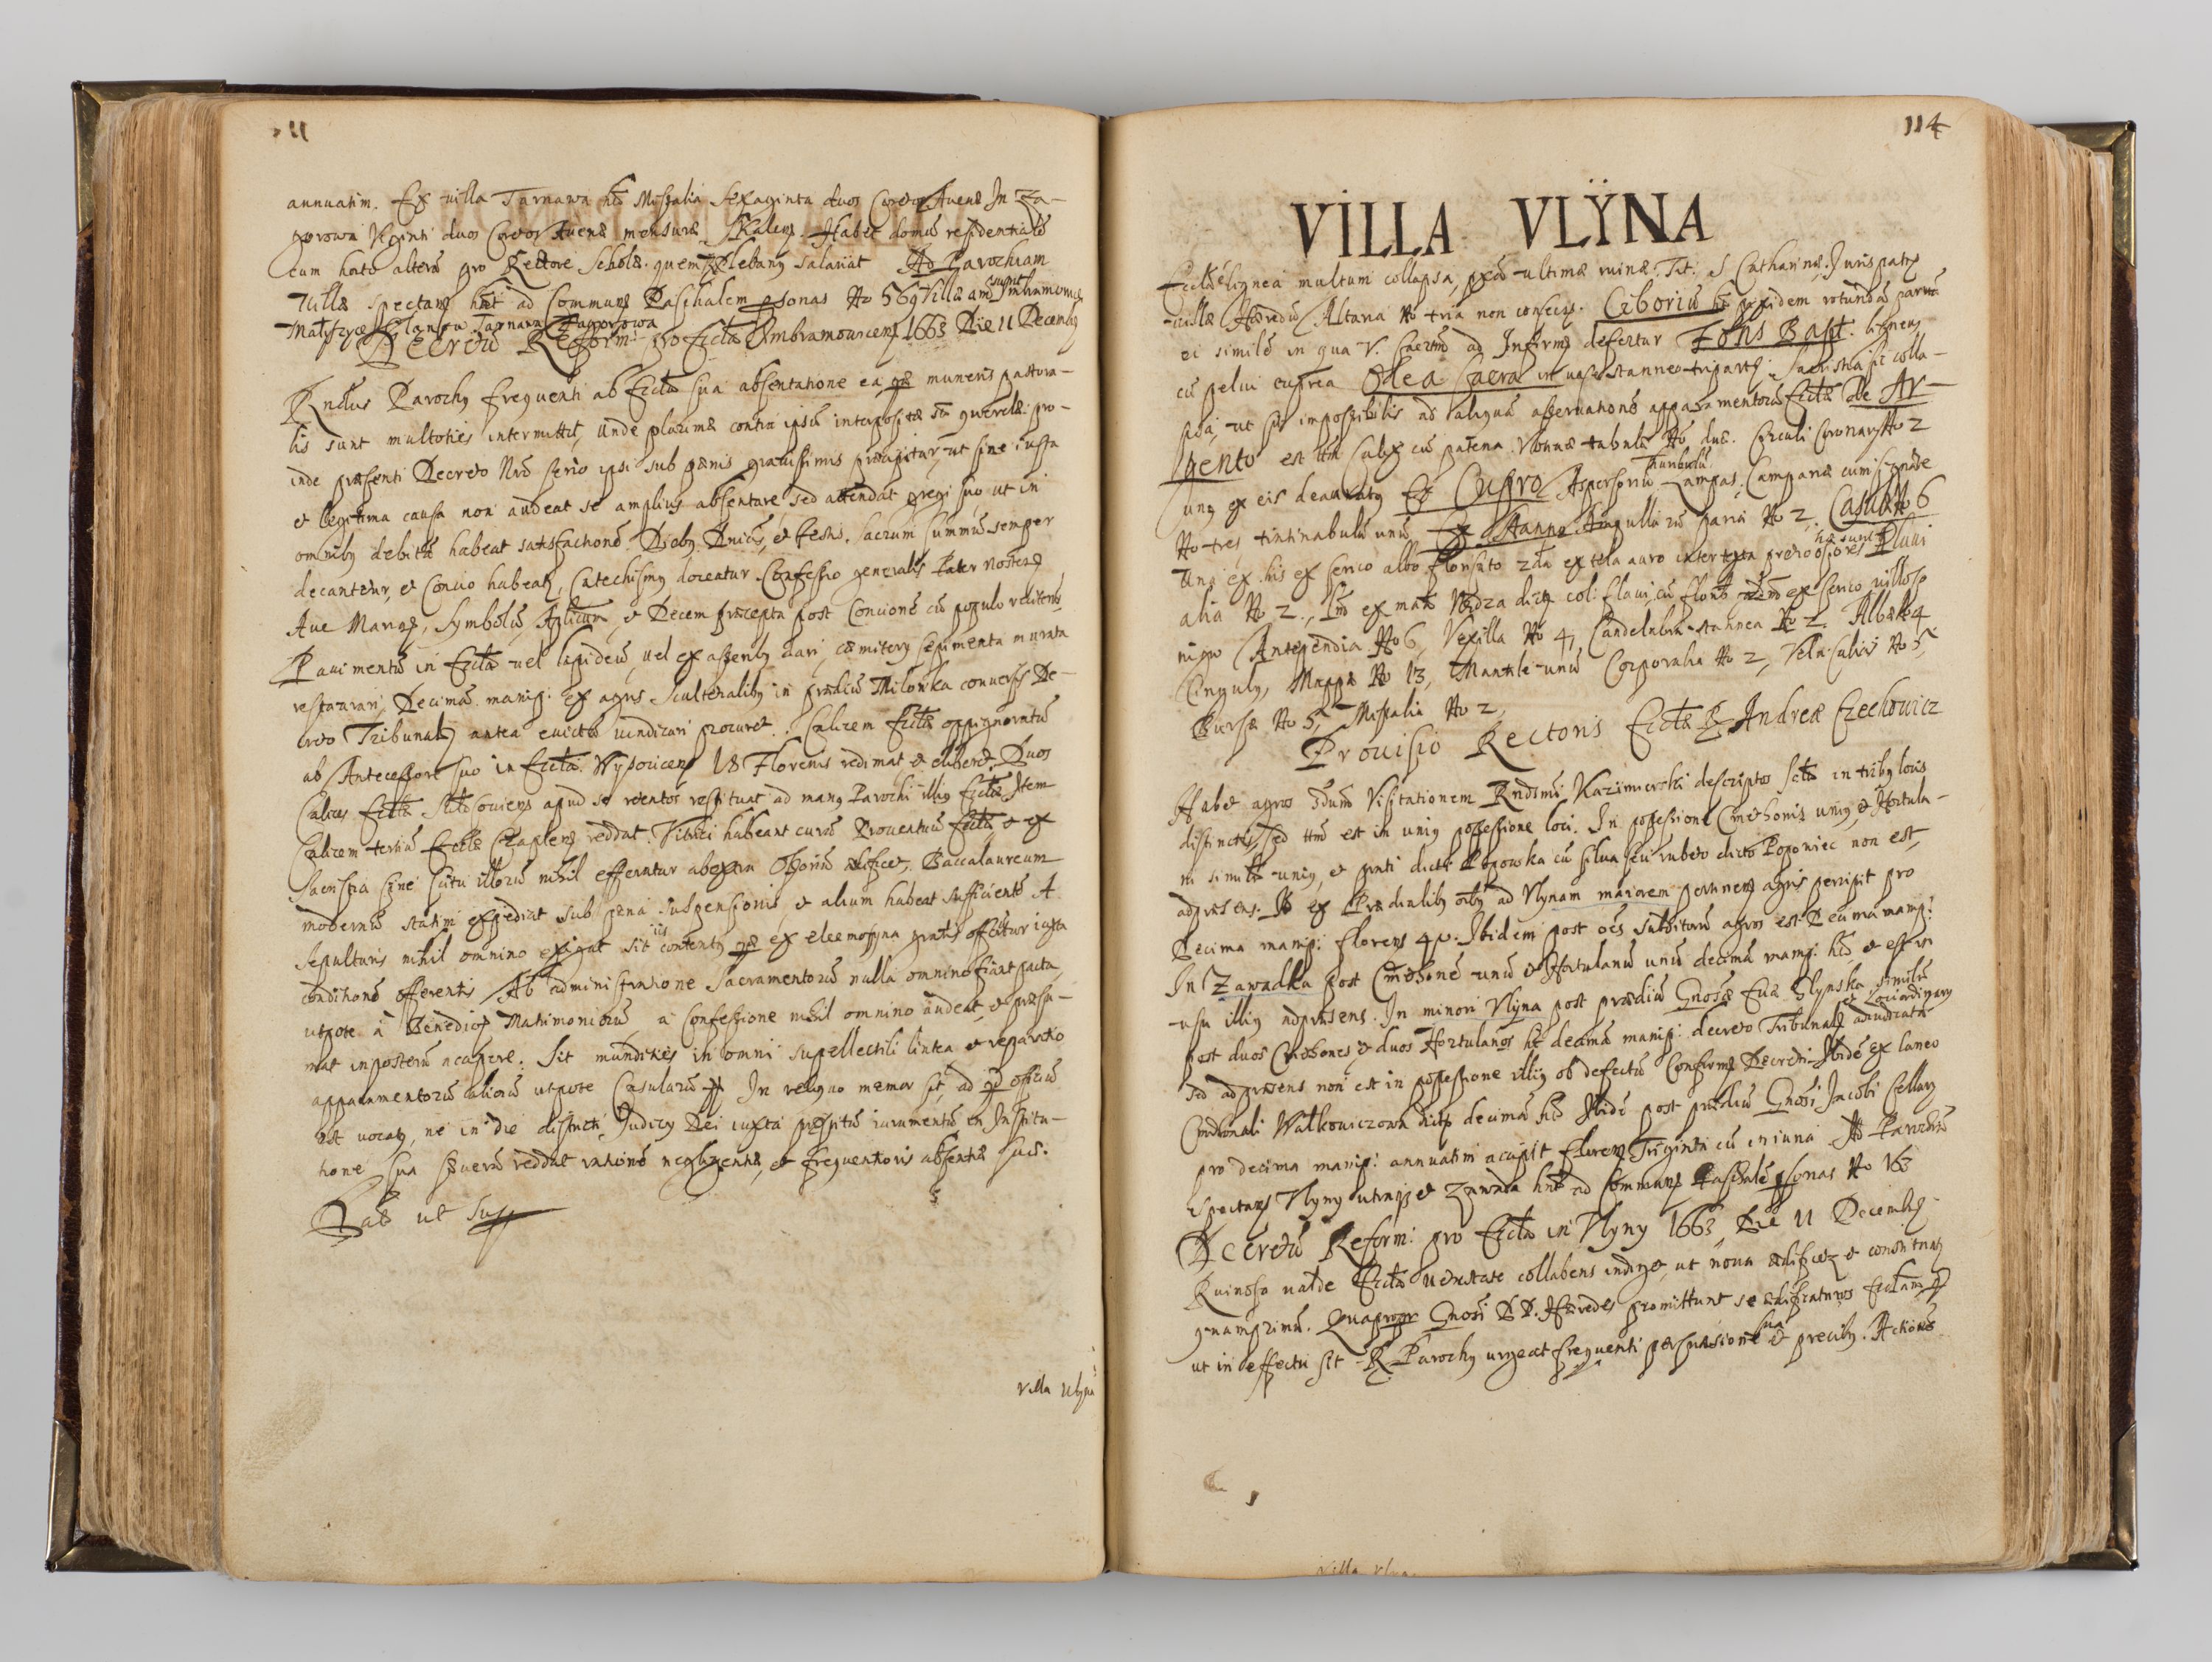 annuatim. Ex villa Tarnawa hēt Missalia Sexaginta duos Coretos Avenæ In Za-
gorowa Viginti duos Coretos Avenæ mensuræ Skalens. Habet domū residentialē
cum horto alterū pro Rectore Scholæ quem Plebanus salariat Ad Parochiam
Villæ spectans hñt ad Commune Paschalem psonas No 569 Villæ aūt sunt Imbramowice
Małyszyce Glanow Tarnawa Zagorowa
Decretū Reform: pro Eccła Imbramouicens 1663 Die 11 Decembr
Rndus Parochus frequenti ab Eccła sua absentatione ea quæ muneris pastora-
lis sunt multoties intermittit, Unde plurimæ contra ipsū interpositæ sūt querelæ pro-
inde præsenti Decreto Nrō serio ipsi sub pænis gravissimis præcipitur, ut sine iusta
et legitima causa non audeat se amplius absentare sed attendat gregi suo, ut in
omnibus debitā habeat satisfactionē. Diebus Dnicis, et festis. Sacrum summū semper
decantetur, et Concio habeatur, Catechismus doceatur. Confessio generalis Pater noster
Ave Maria, Symbolū Aplicum, et Decem præcepta post Concionē cū populo recitentur
Pavimentū in Eccła vel lapideū, vel ex asseribus dari, cæmiterii sepimenta murata
restaurari, Decimā manip: Ex agris Scultetialibus in prædiū Milonka conversis De-
creto Tribunalis antea evictā vindicari procuret. Calicem Eccłæ oppignoratū
ab Antecessore suo in Eccła Wysocicens 18 Florenis redimat et eliberet. Duos
Calices Eccłæ apud se retentos restituat ad manus Parochi illius Eccłæ Item
Calicem tertiū Eccłæ Czaplens reddat. Vitrici habeant curā Proventuū Eccłæ et ex
Sacristia sine scitu illorū nihil efferatur Baccalaureum
modernū statim expediat sub pæna suspensionis, et alium habeat sufficientē A
sepulturis nihil omnino exigat sit iis contentus quæ ex eleemosyna gratis offeruntur iuxta
conditionē offerentis Ab administratione Sacramentorū nulla omnino fiant pacta
utpote à Benedictis Matrimoniorū, a Confessione nihil omnino audeat, et præsu-
mat inposterū accipere. Sit mundities in omni supellectili lintea et reparatio
apparamentorū aliorū utpote Casularū In reliquo memor sit, ad qd officiū
est vocatus, ne in die districti Judicii Dei iuxta præstitū iuramentū in Institu-
tione sua severā reddat rationē negligentiæ, et frequentioris absentiæ suæ.
Dat ut sup
Villa Ulyna
114
VILLA VLŸNA
Ecclā lignea multum collapsa, pxā ultimæ ruinæ. Tit: S Catharinæ. Juris patrs
villæ Hæredū Altaria No tria non consecr. Ciboriū hēt pixidem rotundā parvā
ei similē in qua V. Sacrtm ad Infirmos defertur Fons Bapt. ligneus
cū pelvi cuprea Olea Sacra in vase stanneo tripartiti Sacristia sic colla-
psa, ut sit impossibilis ad aliquā asservationē apparamentorū Eccłæ De Ar-
gento est ttm Calix cū patena Votivæ tabulæ No duæ. Circuli Coronarij No 2
unus ex eis deauratus Ex Cupro Aspersoriū Thuribulū Lampas, Campanæ cum signo
No tres tintinabulū unū Ex Stanno Ampullarū paria No 2. Casulæ No 6
Una ex his ex serico albo florisato 2da ex tela auro intertexta hæ sunt pretiosiores Pluvi
alia No 2.
nigro Antependia No 6, Vexilla No 4, Candelabra stannea No 2. Albæ No 4
Cinguli, Mappæ No 13, Mantile unū Corporalia No 2, Vela Calicis No 5
Bursæ No 5, Missalia No 2,
Provisio Rectoris Eccłæ R Andreæ Czechowicz
Habet agros scdum Visitationem Rndsmi Kazimierski descriptos in tribus locis
distinctis, sed ttm est in unius possessione loci. In possessione Cmethonis unius, et Hortula-
ni similiter unius, et prati dicti Popowka cū silva seu rubeto dicto Poponiec non est,
adpræsens. ex Prædialibus oibus ad Ulynam maiorem pertinens agris percipit pro
Decima manip: Florens 40. Ibidem post oēs subditorū agros est Decima manip:
In Zawadka post Cmethonē unū et Hortulanū unū decimā manip: hēt et est in
usu illius adpræsens. In minori Ulyna post prædiū Gnosæ Evæ Ulynska similē
post duos Cmethones, et duos Hortulanos hēt decimā manip: decreto Tribunalis et Loci ordinarij adiudicatā
sed adpræsens non est in possessione illius ob defectū Confirms Decreti Ibidē ex laneo
Cmethonali Walkowiczowā dicto decimā hēt Ibidē post prædiū Gnosi Jacobi Cellary
pro decima manip: annuatim accipit florens Triginta cū iniuria Ad Parochiā
spectans Ulyny utriusque et Zawada hñt ad Commune Paschalē psonas No 163
Decretū Reform: pro Eccła in Ulyny 1663 Die 11 Decembr
Ruinosa valde Eccła vetustate collabens indiget, ut nova ædificetur et constituatur
quamprimū. Quapropter Gnosi DD. Hæredes promittunt se ædificaturos Ecclam
ut in effectu sit R Parochus urgeat frequenti persuasione sua et precibus. Actionē